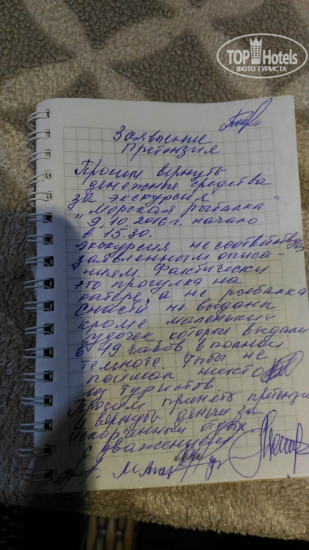 TOP Hotels
ФОТО ТУРИСТА
Заявление
Претензия
Прошу вернуть
денежные средства
за экскурсия
"Морская рыбалка"
9.10.2016 г. начало
в 15.30.
экскурсия не соответствует
заявленным описа-
ниям. Фактически
это прогулка на
катере, а не рыбалка
снасти не выдани
кроме маленьких
удочек которые выдали
в 19 часов в полной
темноте. рыбы не
поймал никто
из туристов.
Просим принять претензию
и вернуть деньги за
испорченный отдых
с уважением